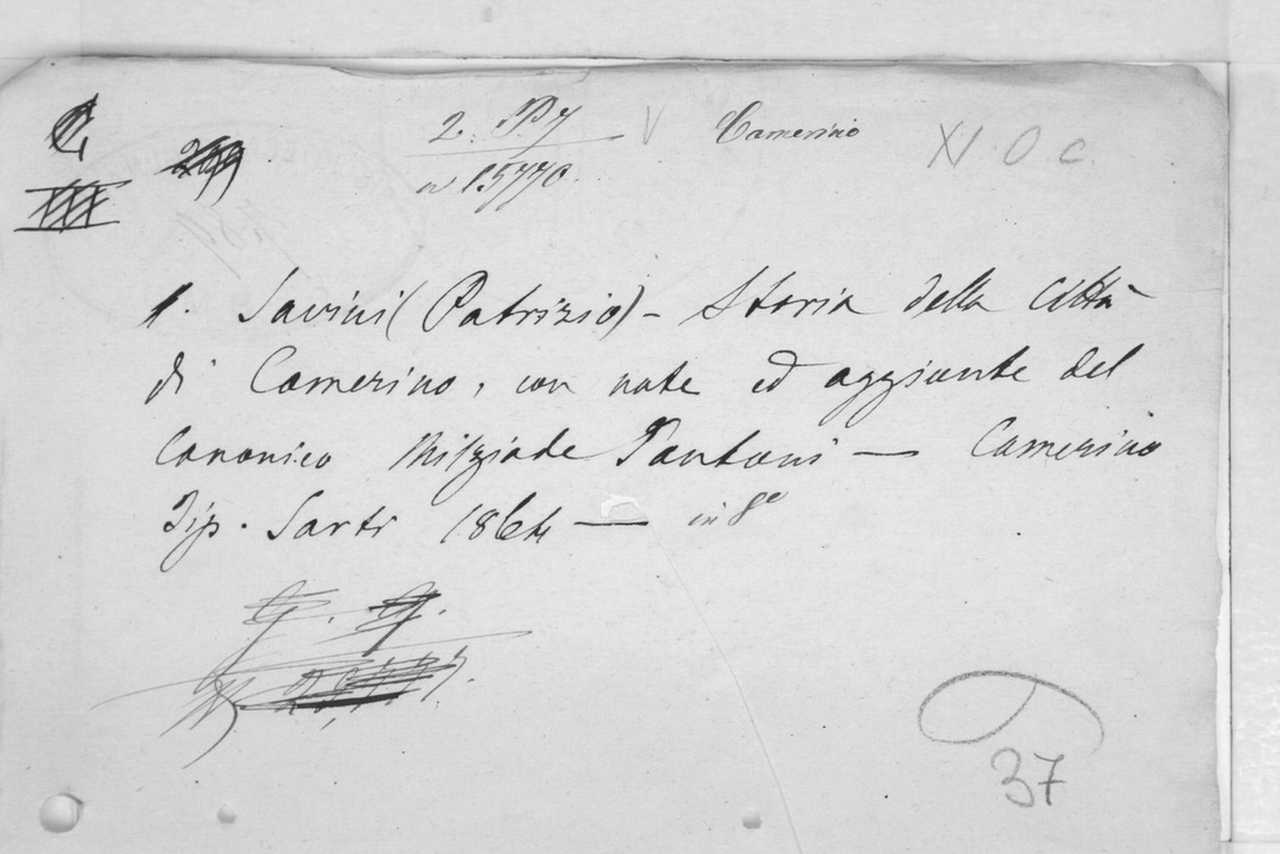 2. P. 7 V Camerino XI. O c.
n 15770.
1. Savini (Patrizio) - Storia della Città
di Camerino, con note ed aggiunte del
Canonico Milziade Santoni — Camerino
Tip. Sarti 1864 — in 8º
37